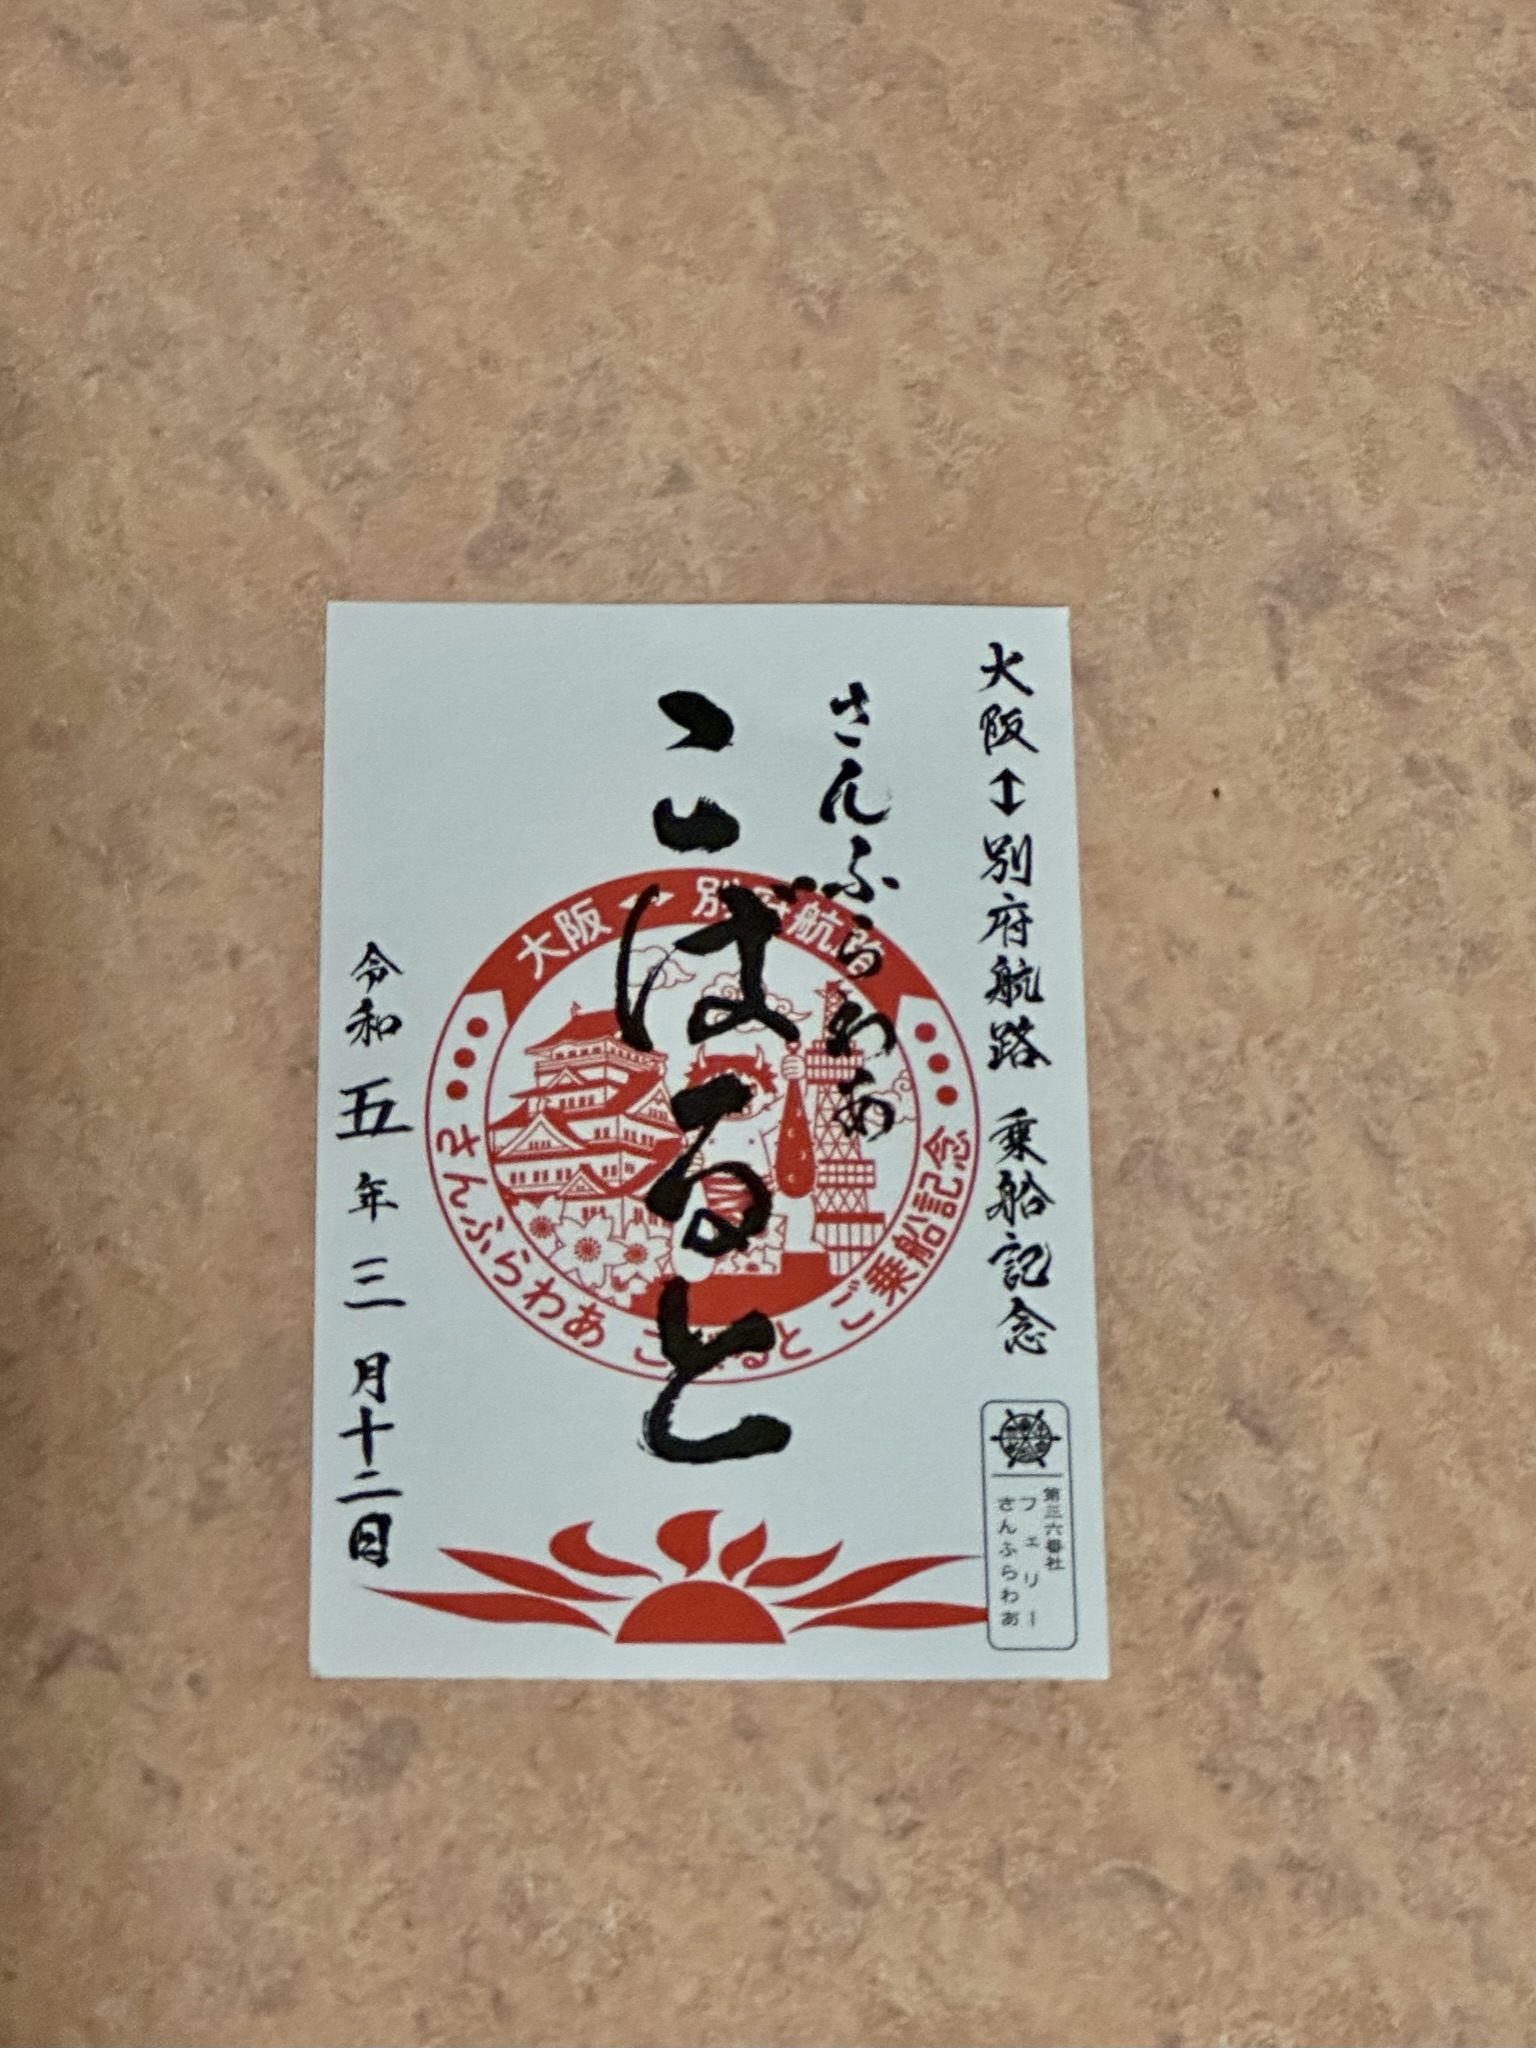 大阪↕別府航路 乗船記念
さんふらわあ
こばると
令和五年三月十二日
大阪↔別府航路
さんふらわあ こばると ご乗船記念
第三六番社
フェリー
さんふらわあ